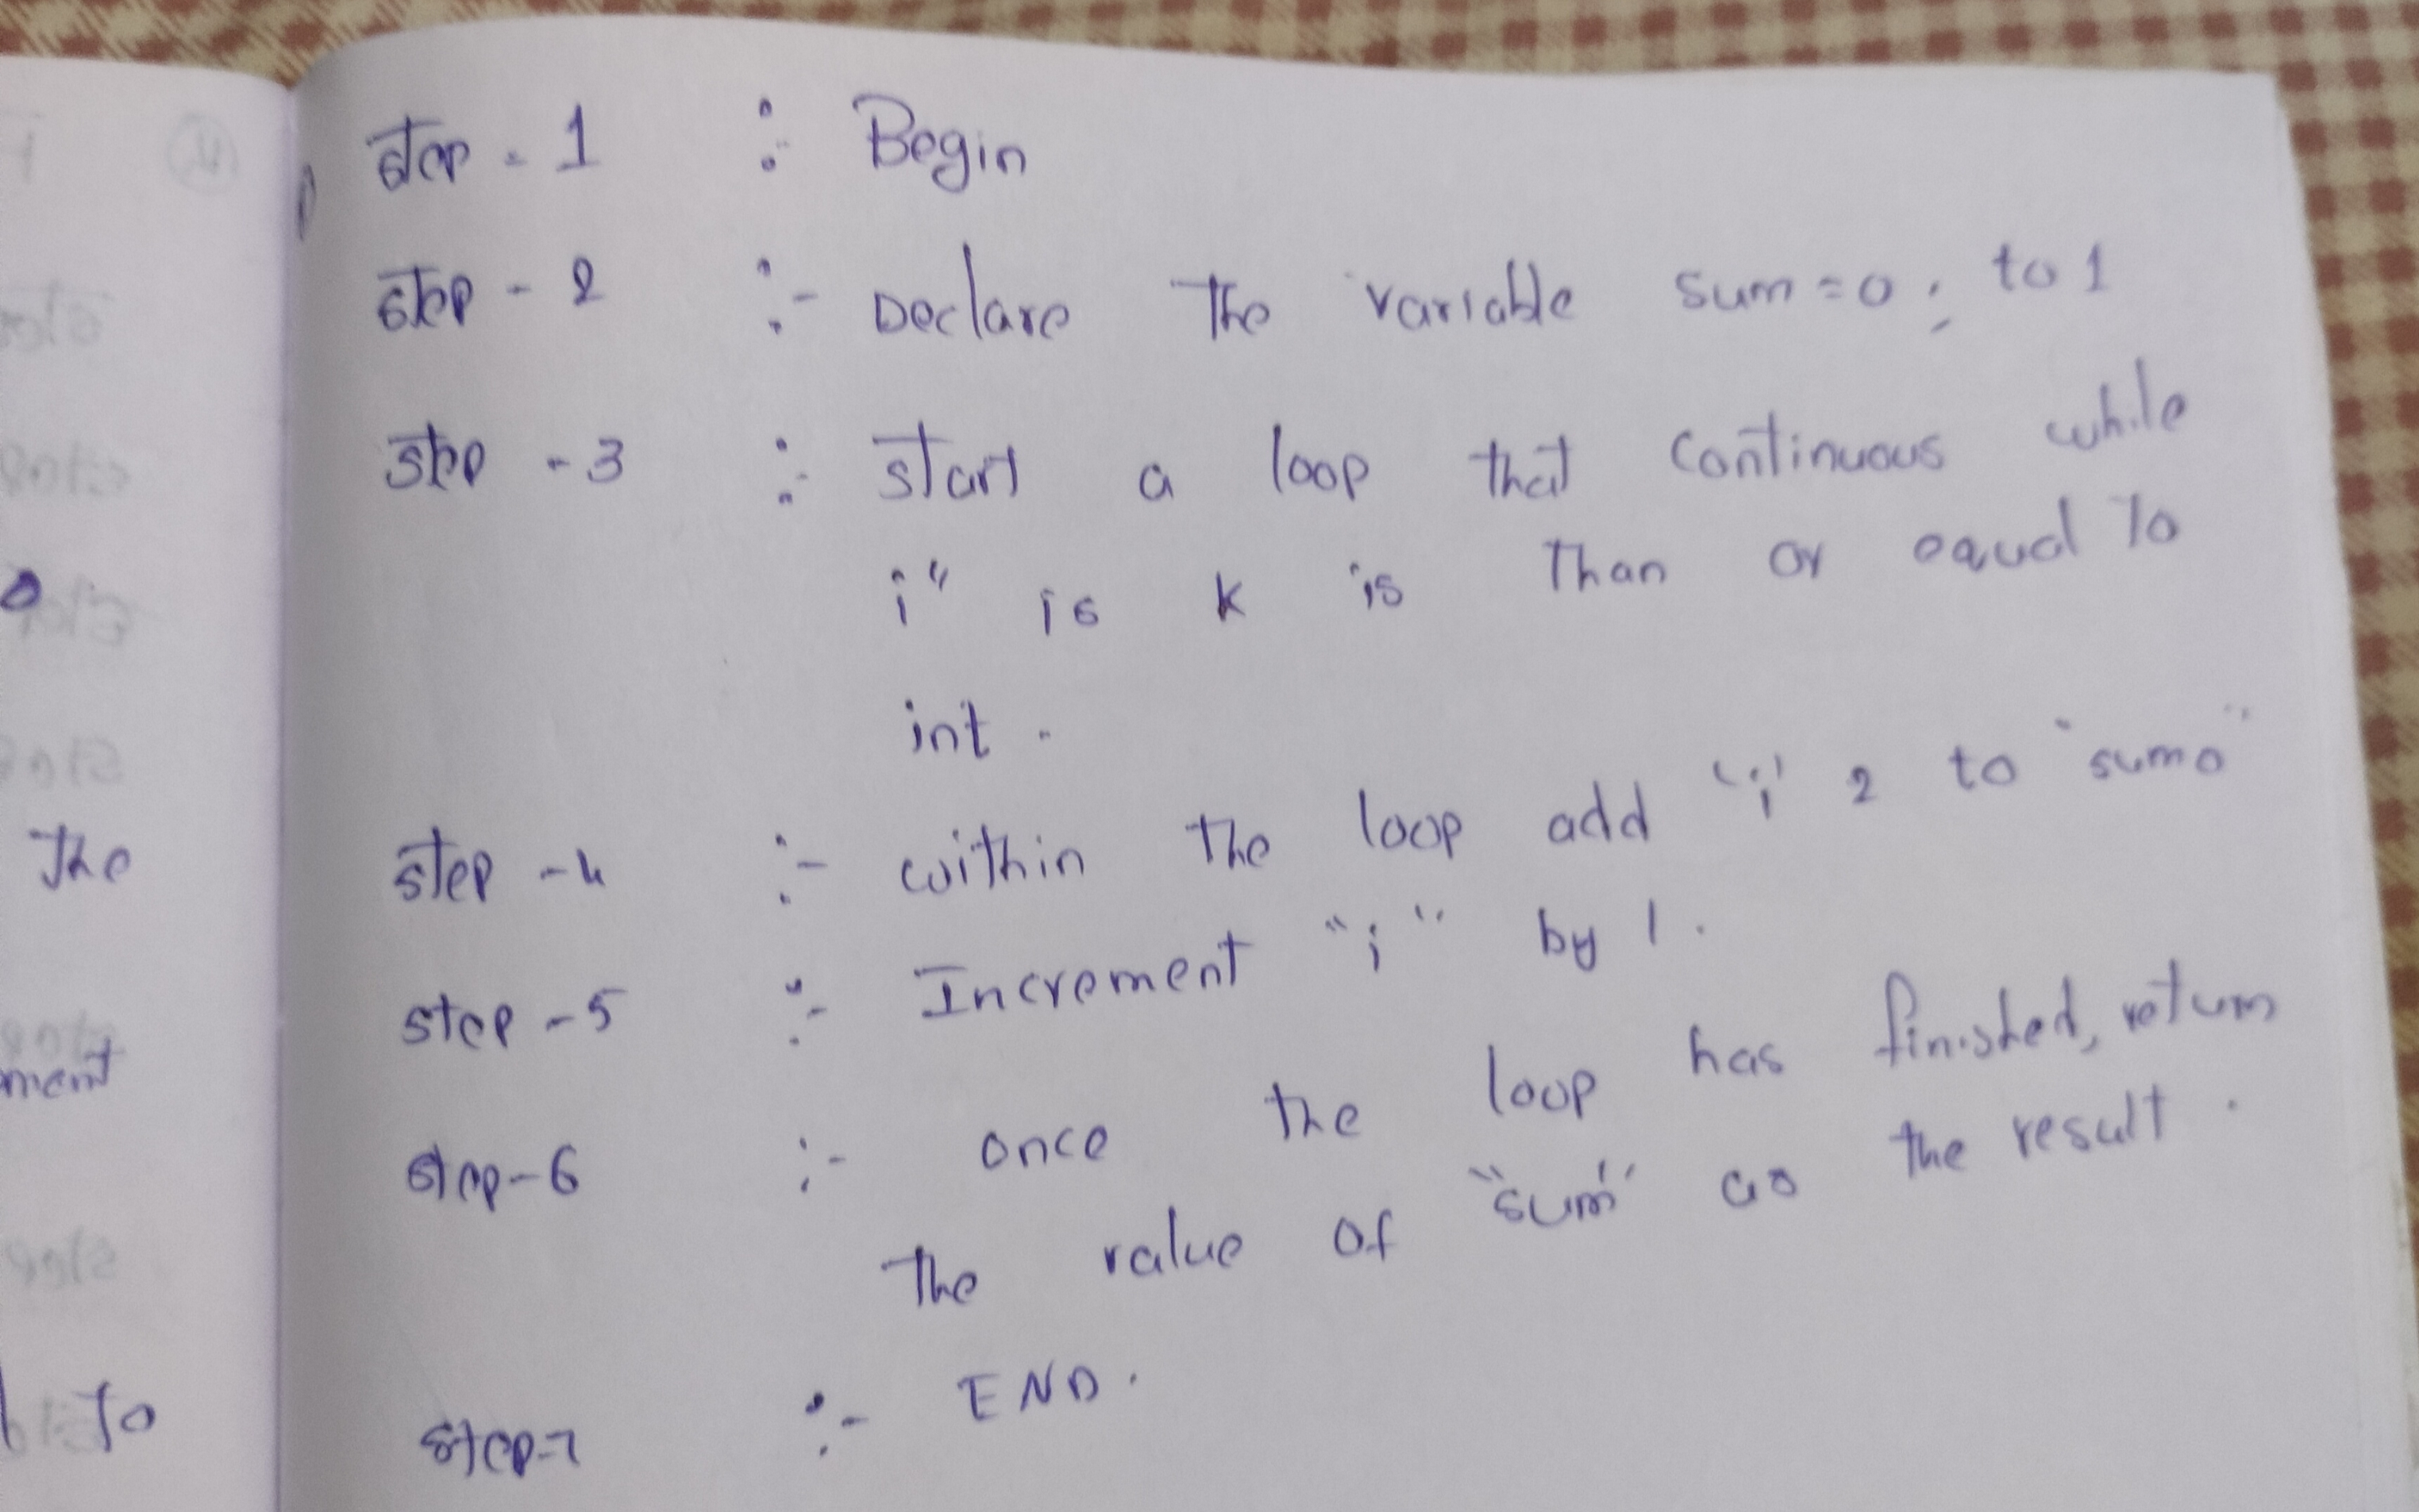 step - 1 :- Begin
step - 2 :- Declare the variable sum=0; to 1
step - 3 :- start a loop that continuous while
i" is k is than or equal to
int.
step - 4 :- within the loop add 'i' 2 to "sumo"
step - 5 :- Increment "i" by 1.
step - 6 :- once the loop has finished, return
the value of "sum" as the result.
step-7 :- END.
The
ment
to